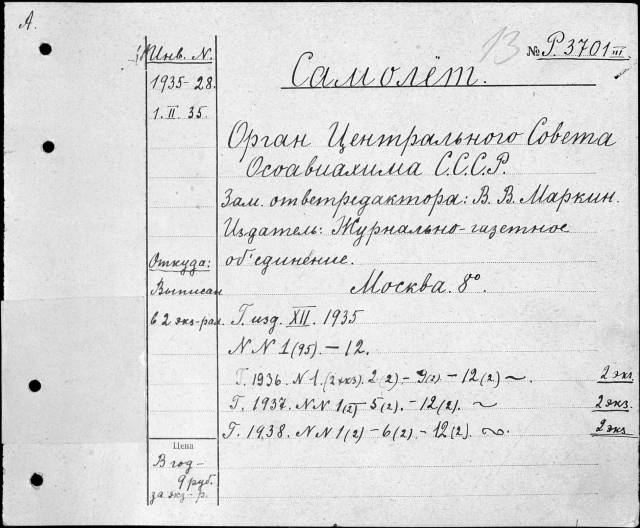 А.
13
№ Р. 3701 III
Инв. N.
1935-28.
1. II. 35.
Самолёт.
Орган Центрального Совета
Осоавиахима С.С.С.Р.
Зам. ответредактора: В. В. Маркин.
Издатель: Журнально-газетное
об'единение.
Москва. 8°.
Откуда:
Выписан
в 2 экз-рах.
Г. изд. XII. 1935
N N 1 (95). - 12.
Г. 1936. N 1. (2 экз). 2 (2) - 9 (2) - 12 (2) ~. 2 экз
Г. 1937. N N 1 (2) - 5 (2). - 12 (2). ~ 2 экз.
Г. 1938. N N 1 (2) - 6 (2). - 12 (2). ~. 2 экз
Цена
В год-
9 руб.
за экз-р.